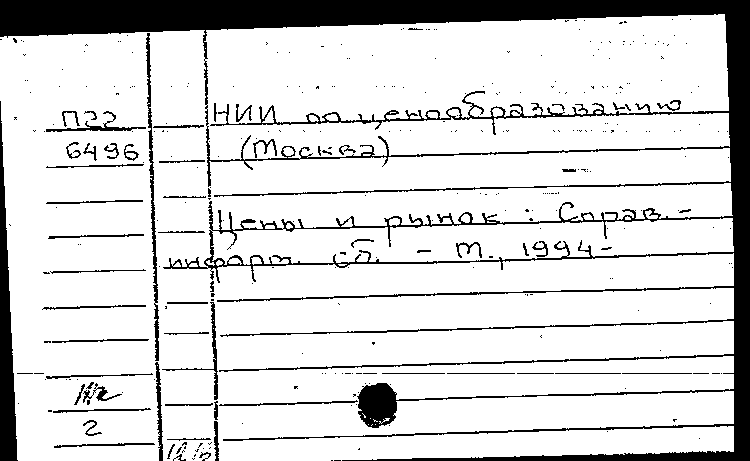 П22
6496
НИИ по ценообразованию
(Москва)
Цены и рынок : Справ. -
информ. сб. - М., 1994-
2